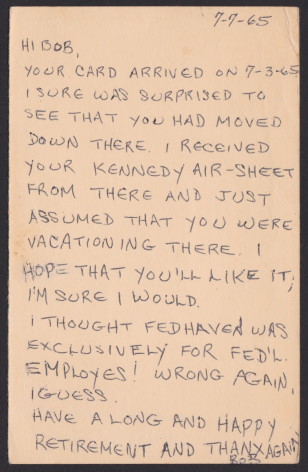 7-7-65
HI BOB,
YOUR CARD ARRIVED ON 7-3-65,
I SURE WAS SURPRISED TO
SEE THAT YOU HAD MOVED
DOWN THERE. I RECEIVED
YOUR KENNEDY AIR-SHEET
FROM THERE AND JUST
ASSUMED THAT YOU WERE
VACATIONING THERE. I
HOPE THAT YOU'LL LIKE IT,
I'M SURE I WOULD.
I THOUGHT FEDHAVEN WAS
EXCLUSIVELY FOR FED'L.
EMPLOYES! WRONG AGAIN,
I GUESS.
HAVE A LONG AND HAPPY
RETIREMENT AND THANX AGAIN
BOB